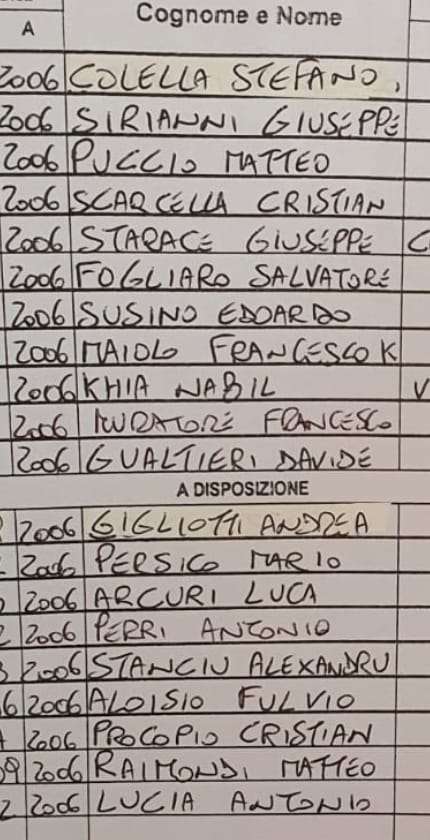 A
Cognome e Nome
2006 COLELLA STEFANO.
2006 SIRIANNI GIUSEPPE
2006 PUCCIO MATTEO
2006 SCARCELLA CRISTIAN
2006 STARACE GIUSEPPE C
2006 FOGLIARO SALVATORE
2006 SUSINO EDOARDO
2006 MAIOLO FRANCESCO K
2006 KHIA NABIL V
2006 MURATORE FRANCESCO
2006 GUALTIERI DAVIDE
A DISPOSIZIONE
2006 GIGLIOTTI ANDREA
2006 PERSICO MARIO
2006 ARCURI LUCA
2 2006 PERRI ANTONIO
3 2006 STANCIU ALEXANDRU
6 2006 ALOISIO FULVIO
2006 PROCOPIO CRISTIAN
9 2006 RAIMONDI MATTEO
2 2006 LUCIA ANTONIO